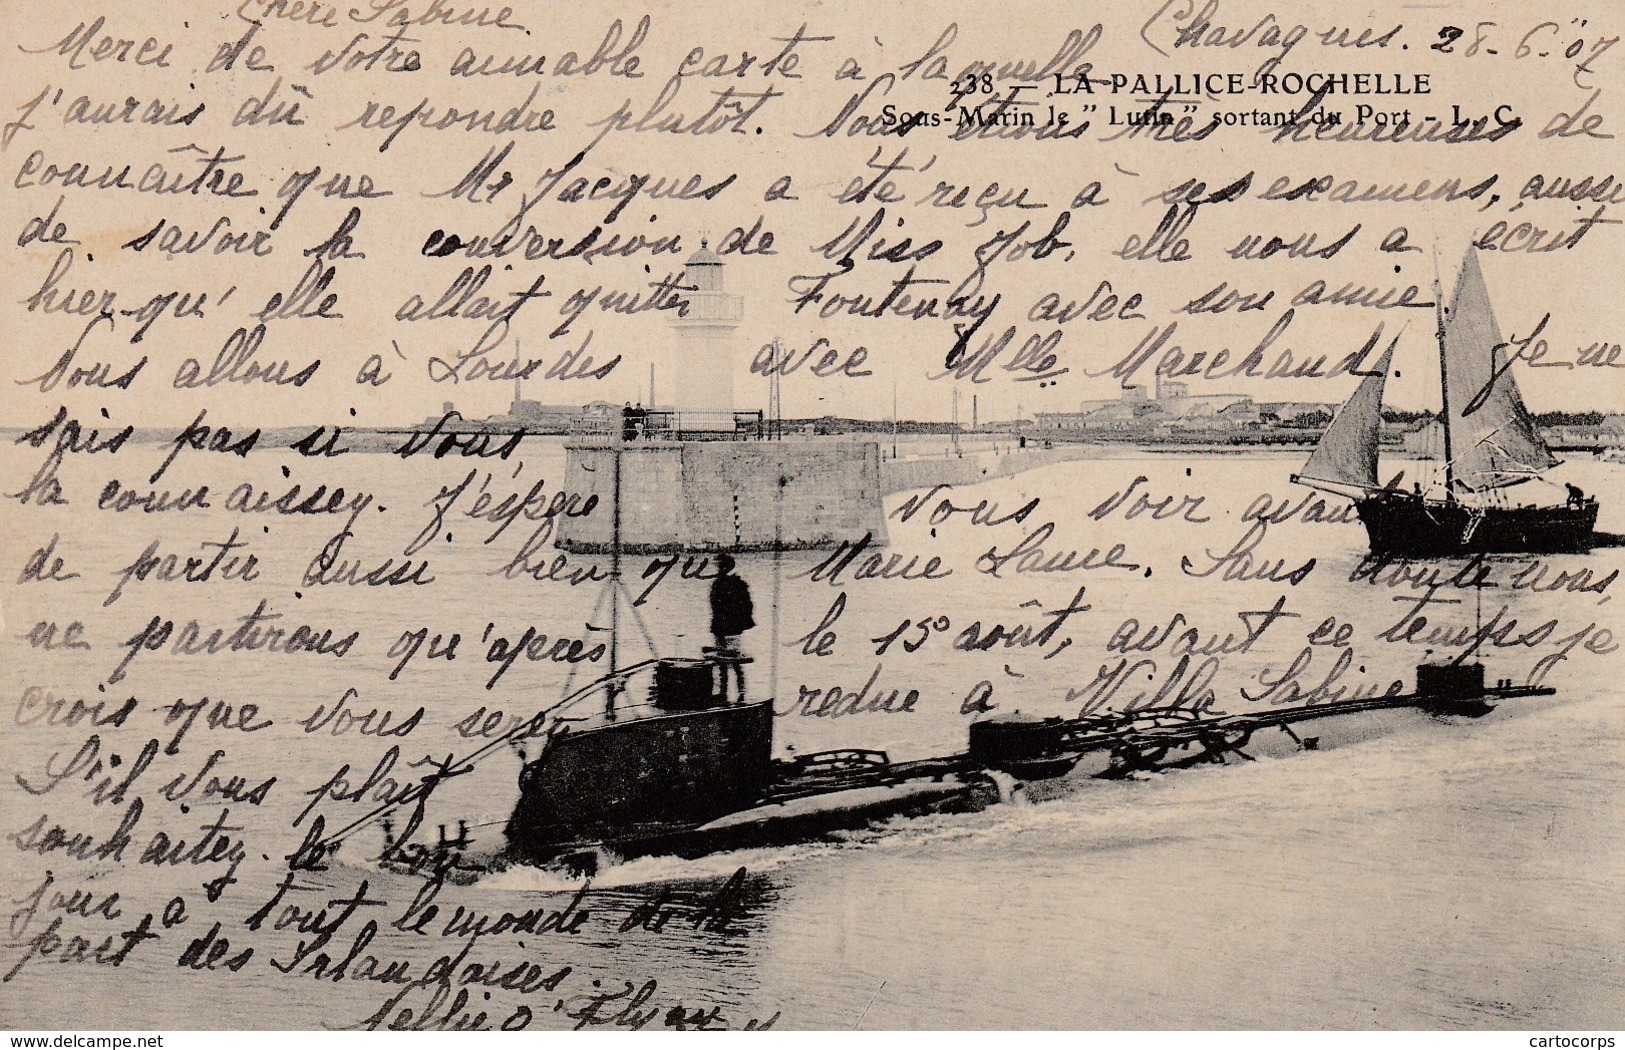 Chère Sabine
Chavagnes. 28-6-07
Merci de votre aimable carte à laquelle
238 — LA PALLICE-ROCHELLE
Sous-Marin le " Lutin " sortant du Port - L. C.
j'aurais dû repondre plutôt. Nous étions très heureuses de
connaître que Mr Jacques a été reçu à ses examens, aussi
de savoir la conversion de Miss Job, elle nous a écrit
hier qu'elle allait quitter Fontenay avec son amie.
Nous allons à Lourdes avec Mlle Marchand. Je ne
sais pas si vous
la connaissez. J'éspère vous voir avant
de partir aussi bien que Marie Laure. Sans doute nous
ne partirons qu'après le 15 août, avant ce temps je
crois que vous serez redue à Villa Sabine
S'il vous plaît
souhaitez le bon
jour à tout le monde de la
part des Irlandaises.
Nellie O'Flynn
delcampe.net
cartocorps